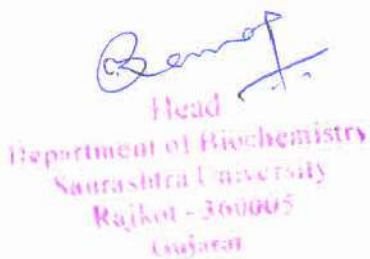 Head
Department of Biochemistry
Saurashtra University
Rajkot - 360005
Gujarat